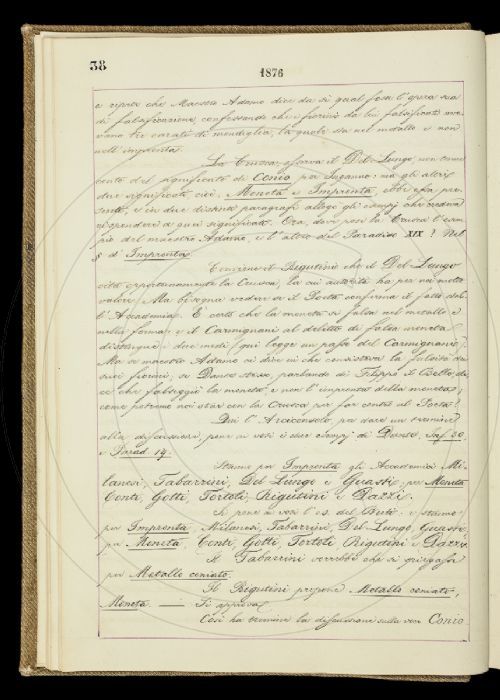 38
1876
e ripiglia che Maestro Adamo dice da sè qual fosse l'opera sua
di falsificazione, confessando che i fiorini da lui falsificati ave-
vano tre carati di mondiglia, la quale sta nel metallo e non
nell'impronta.
La Crusca, osserva il Del Lungo, non tiene
conto del significato di Conio per Inganno: ma gli altri
due significati, cioè, Moneta e Impronta, ebbe essa pre-
senti, e in due distinti paragrafi allegò gli esempj che vedeva
rispondere a quei significati. Ora, dove pose la Crusca l'esem-
pio del maestro Adamo, e l'altro del Paradiso XIX? Nel
§ d'Impronta.
Conviene il Rigutini che il Del Lungo
cita opportunamente la Crusca, la cui autorità ha per noi molto
valore. Ma bisogna vedere se il Poeta conferma il fatto del-
l'Accademia. È certo che la moneta si falsa nel metallo e
nella forma; e il Carmignani al delitto di falsa moneta
distingue i due modi (qui legge un passo del Carmignani).
Ma se maestro Adamo ci dice in che consisteva la falsità de'
suoi fiorini; se Dante stesso, parlando di Filippo il Bello, di-
ce che falseggiò la moneta, e non l'impronta della moneta;
come potremo noi star con la Crusca per far contro al Poeta?
Qui l'Arciconsolo, per dare un termine
alla discussione, pone a voti i due esempj di Dante, Inf. 30.
e Parad. 19.
Stanno per Impronta gli Accademici Mi-
lanesi, Tabarrini, Del Lungo e Guasti; per Moneta
Conti, Gotti, Tortoli, Rigutini e Dazzi.
Si pone a voti l'es. del Buti: e stanno
per Impronta, Milanesi, Tabarrini, Del Lungo, Guasti;
per Moneta, Conti, Gotti, Tortoli, Rigutini e Dazzi.
Il Tabarrini vorrebbe che si spiegasse
per Metallo coniato.
Il Rigutini propone Metallo coniato,
Moneta. — Si approva.
Così ha termine la discussione sulla voce Conio